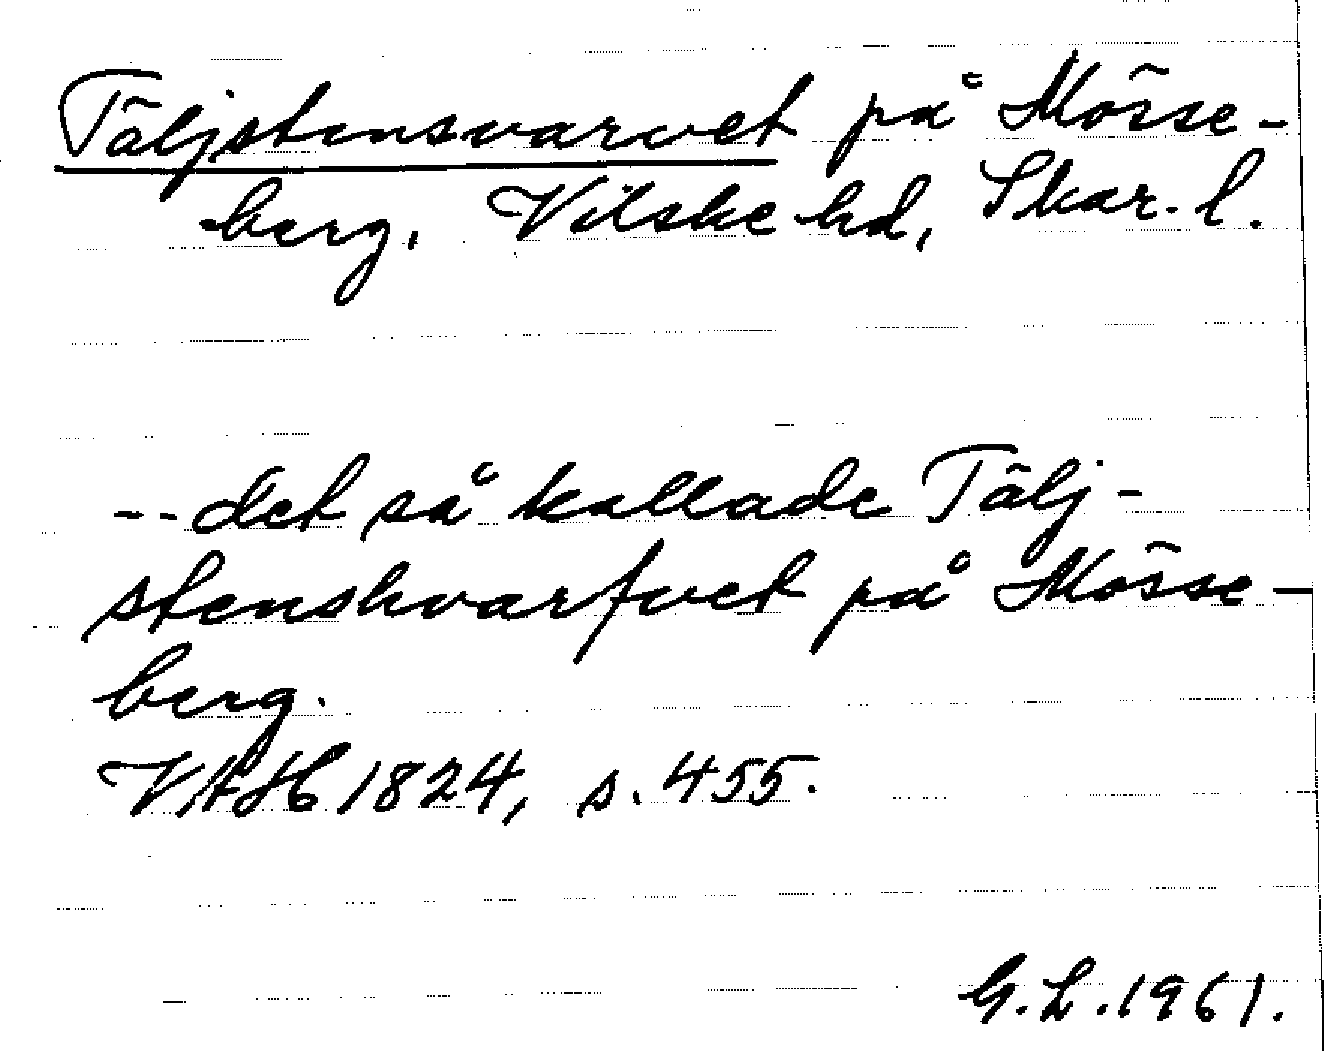 Täljstensvarvet på Mösse-
berg. Vilske hd, Skar. l.
-- det så kallade Tälj-
stenshvarfvet på Mösse-
berg.
VAH 1824, s. 455.
G.L. 1961.